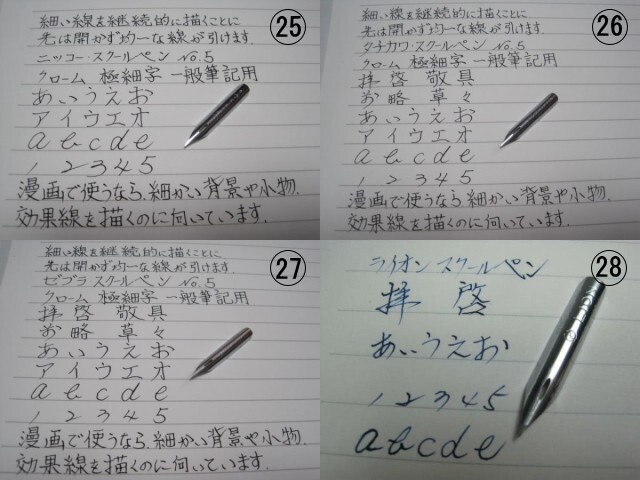 25
細い線を継続的に描くことに
先は開かず均一な線が引けます.
ニッコー・スクールペン No.5
クローム 極細字 一般筆記用
あいうえお
アイウエオ
a b c d e
1 2 3 4 5
漫画で使うなら、細かい背景や小物.
効果線を描くのに向いています.
26
細い線を継続的に描くことに
先は開かず均一な線が引けます.
タチカワ・スクールペン No.5
クローム 極細字 一般筆記用
拝啓 敬具
前略 草々
あいうえお
アイウエオ
a b c d e
1 2 3 4 5
漫画で使うなら、細かい背景や小物.
効果線を描くのに向いています.
27
細い線を継続的に描くことに
先は開かず均一な線が引けます.
ゼブラ スクールペン No.5
クローム 極細字 一般筆記用
拝啓 敬具
前略 草々
あいうえお
アイウエオ
a b c d e
1 2 3 4 5
漫画で使うなら、細かい背景や小物.
効果線を描くのに向いています.
28
ライオン スクールペン
拝 啓
あいうえお
1 2 3 4 5
a b c d e
LION